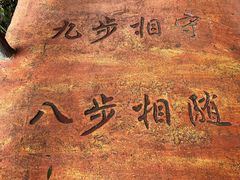 九步相守
八步相随